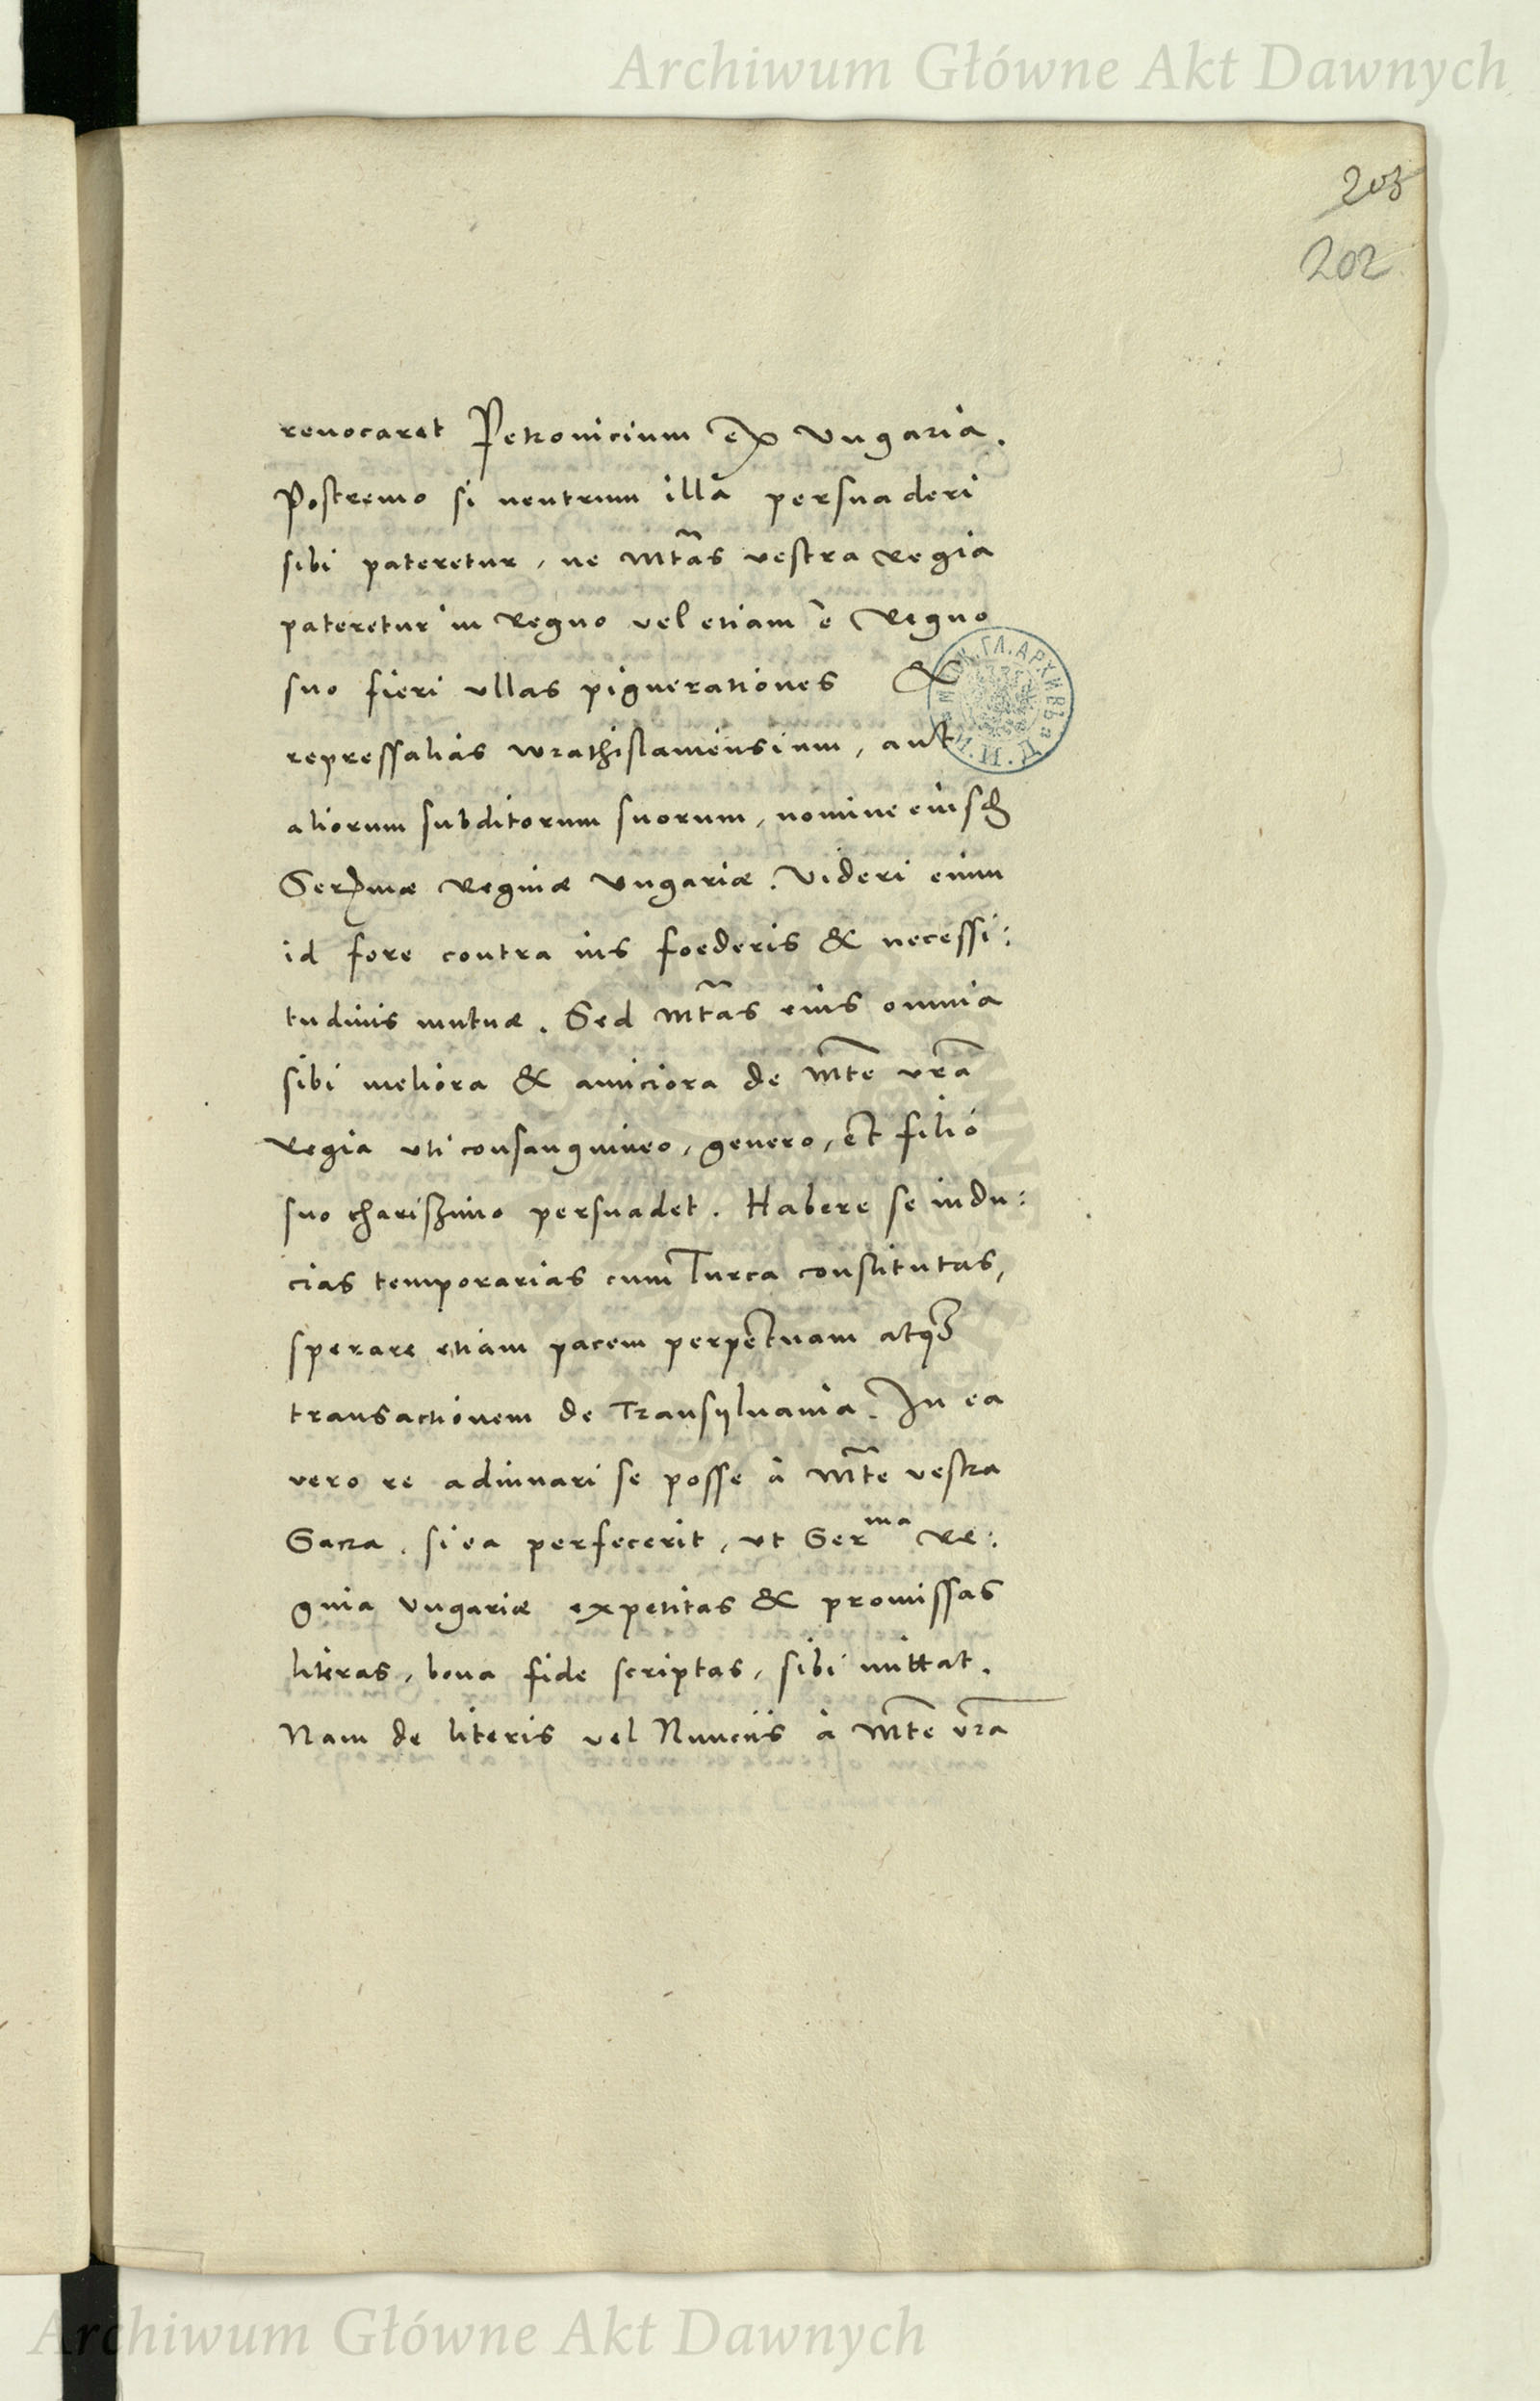 Archiwum Główne Akt Dawnych
203
202
reuocaret Petrouicium ex Vngaria.
Postremo si neutrum illa persuaderi
sibi pateretur, ne Mtãs vestra Regia
pateretur in Regno vel etiam è Regno
suo fieri vllas pignerationes &
repressalias wrathislauiensium, aut
aliorum subditorum suorum, nomine eiusd
Sermæ Reginæ Vngariæ. Videri enim
id fore contra ius foederis & necessi:
tudinis mutuæ. Sed Mtãs eius omnia
sibi meliora & amiciora de Mte vrã
Regia vti consanguineo, genero, et filio
suo charissimo persuadet. Habere se indu:
cias temporarias cum Turca constitutas,
sperare etiam pacem perpetuam atq3
transactionem de Transyluania. In ea
vero re adiuuari se posse à Mte vestra
Sacra, si ea perfecerit, vt Ser^ma Re:
gina Vngariæ expetitas & promissas
literas, bona fide scriptas, sibi mittat.
Nam de literis vel Nunciis à Mte vrã
Archiwum Główne Akt Dawnych